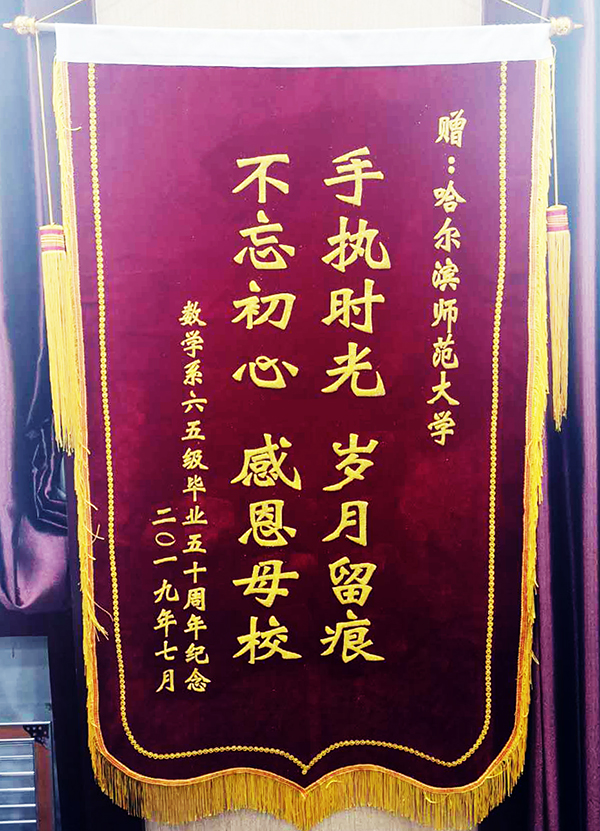 赠：哈尔滨师范大学
手执时光 岁月留痕
不忘初心 感恩母校
数学系六五级毕业五十周年纪念
二〇一九年七月